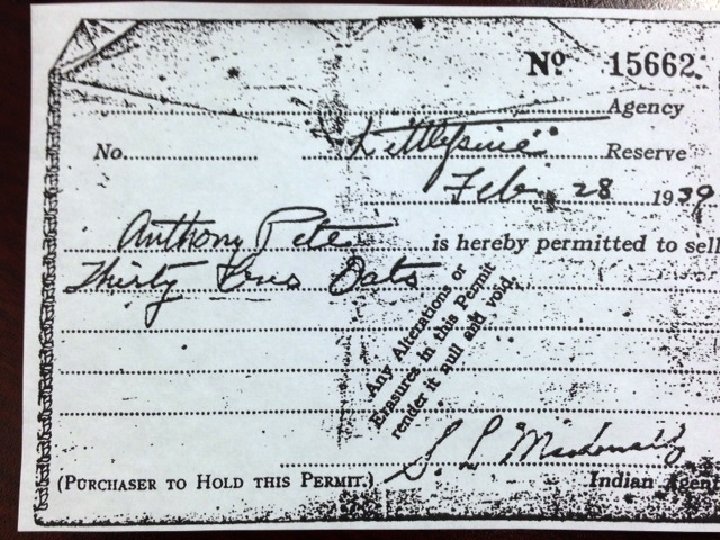 Nº 15662
Agency
No. "Littlepine" Reserve
Feb. 28 1939
Anthony Pete is hereby permitted to sell
Thirty Oats
Any Alterations or
Erasures in this Permit
render it null and void.
S. L. Macdonald
(PURCHASER TO HOLD THIS PERMIT.) Indian Agent